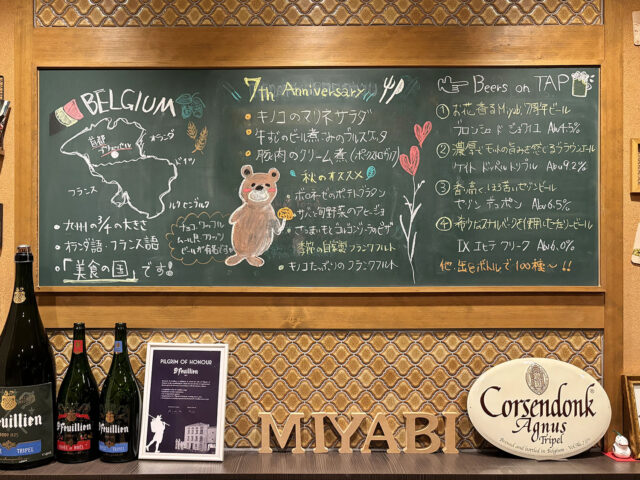 BELGIUM
首都
ブリュッセル
オランダ
ドイツ
フランス
ルクセンブルク
・九州の3/4の大きさ
・オランダ語・フランス語
・「美食の国」です!
チョコ、ワッフル
ムール貝、フリッツ
ビールが有名です
7th Anniversary
・キノコのマリネサラダ
・牛すじのビール煮込みのブルスケッタ
・豚肉のクリーム煮
秋のオススメ
・ボロネーゼのポテトグラタン
・サバと旬野菜のアヒージョ
・さつまいもとゴルゴンゾーラのピザ
・季節の自家製フランクフルト
・キノコたっぷりのフランクフルト
Beers on TAP
① お花香るMiyabi7周年ビール
ブロンシュ ド Alc4.5%
② 濃厚でモルトの旨みを感じるブラウンエール
ケイト ドゥベルトリプル Alc9.2%
③ 香高くほろ苦いセゾンビール
セゾン デュポン Alc6.5%
④
Alc6.0%
他・缶&ボトルで100種〜!!
feuillien
TRIPEL
feuillien
feuillien
PILGRIM OF HONOUR
St feuillien
MIYABI
Corsendonk
Agnus
Tripel